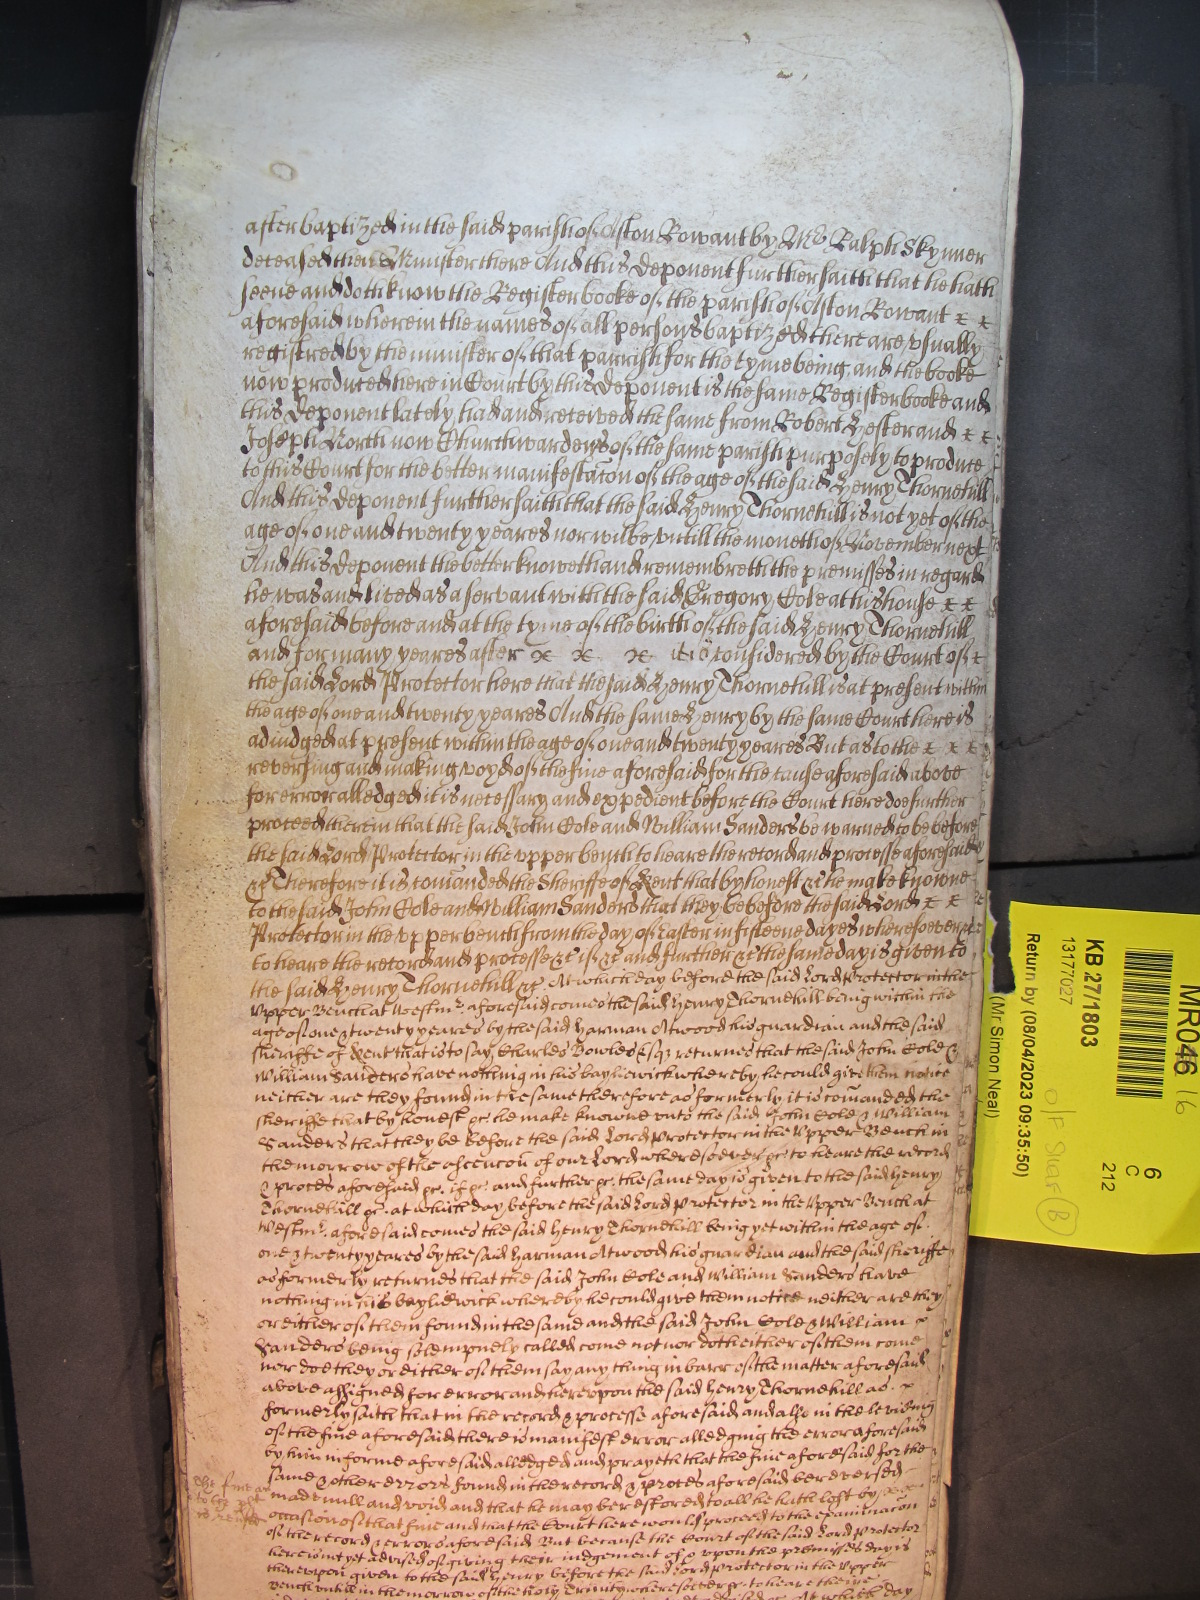 after baptized in the said parish of Aston Rowant by Mr Ralph Skynner
deceased then Minister there And this deponent further saith that he hath
seene and doth know the Register booke of the parish of Aston Rowant x x
aforesaid wherein the names of all persons baptized there are vsually
registred by the minister of that parrish for the tyme being, and the booke
now produced here in Court by this deponent is the same Register booke and
this deponent lately had and received the same from Robert Hester and x x
Joseph North now Churchwardens of the same parish purposely to produce
to this Court for the better manifestacon of the age of the said Henry Thornehill
And this deponent further saith that the said Henry Thornehill is not yet of the
age of one and twenty yeares nor wilbe vntill the moneth of November next
And this deponent the better knoweth and remembreth the premisses in regard
he was and lived as a servant with the said Gregory Cole at his house x x
aforesaid before and at the tyme of the birth of the said Henry Thornehill
and for many yeares after x x x it is considered by the Court of x
the said Lord Protector here that the said Henry Thornehill is at present within
the age of one and twenty yeares And the same Henry by the same Court here is
adiudged at present within the age of one and twenty yeares But as to the x x x
reversing and making voyd of the fine aforesaid for the cause aforesaid above
for error alledged it is necessary and expedient before the Court here doe further
proceed therein that the said John Cole and William Sanders be warned to be before
the said Lord Protector in the vpper bench to heare the record and processe aforesaid
&c Therefore it is comanded the Sheriffe of Kent that by honest &c he make knowne
to the said John Cole and William Sanders that they be before the said Lord x x
Protector in the vpper bench from the day of Easter in fifteene dayes wheresoever &c
to heare the record and processe &c if &c and further &c the same day is given to
the said Henry Thornehill &c. At which day before the said Lord Protector in the
Vpper Bench at Westmr. aforesaid comes the said Henry Thornehill being within the
age of one & twenty yeares by the said Harman Atwood his guardian and the said
sheriffe of Kent that is to say Charles Bowles Esqr returnes that the said John Cole &
William Sanders have nothing in his bayliewick whereby he could give them notice
neither are they found in the same therefore as formerly it is comanded the
sheriffe that by honest &c. he make knowne vnto the said John Cole & William
Sanders that they be before the said Lord Protector in the Vpper Bench in
the morrow of the ascencon of our Lord wheresoever &c to heare the record
& proces aforesaid &c. if &c. and further &c. the same day is given to the said Henry
Thornehill &c. at which day before the said Lord Protector in the Vpper Bench at
Westmr. aforesaid comes the said Henry Thornehill being yet within the age of.
one & twenty yeares by the said Harman Atwood his guardian and the said sheriffe
as formerly returnes that the said John Cole and William Sanders have
nothing in his bayliewick whereby he could give them notice neither are they
or either of them found in the same and the said John Cole & William x
Sanders being solempnely called come not nor doth either of them come
nor doe they or either of them say any thing in barr of the matter aforesaid
above assigned for error and therevpon the said Henry Thornehill as. x
formerly saith that in the record & processe aforesaid and also in the levieing
of the fine aforesaid there is manifest error alledging the error aforesaid
by him in forme aforesaid alledged and prayeth that the fine aforesaid for the
same & other errors found in the record & proces aforesaid be reversed
made null and void and that he may be restored to all he hath lost by x x
occasion of that fine and that the Court here would proceed to the examinacon
of the record & errors aforesaid But because the Court of the said Lord Protector
here is not yet advised of giving their iudgement of & vpon the premisses day is
therevpon given to the said Henry before the said Lord Protector in the Vpper
Bench vntill in the morrow of the holy Trinity wheresoever &c. to heare their
At which day
The fine
MR046 16
6
C
212
KB 27/1803
13177027
Return by (08/04/2023 09:35:50)
(Mr Simon Neal)
B